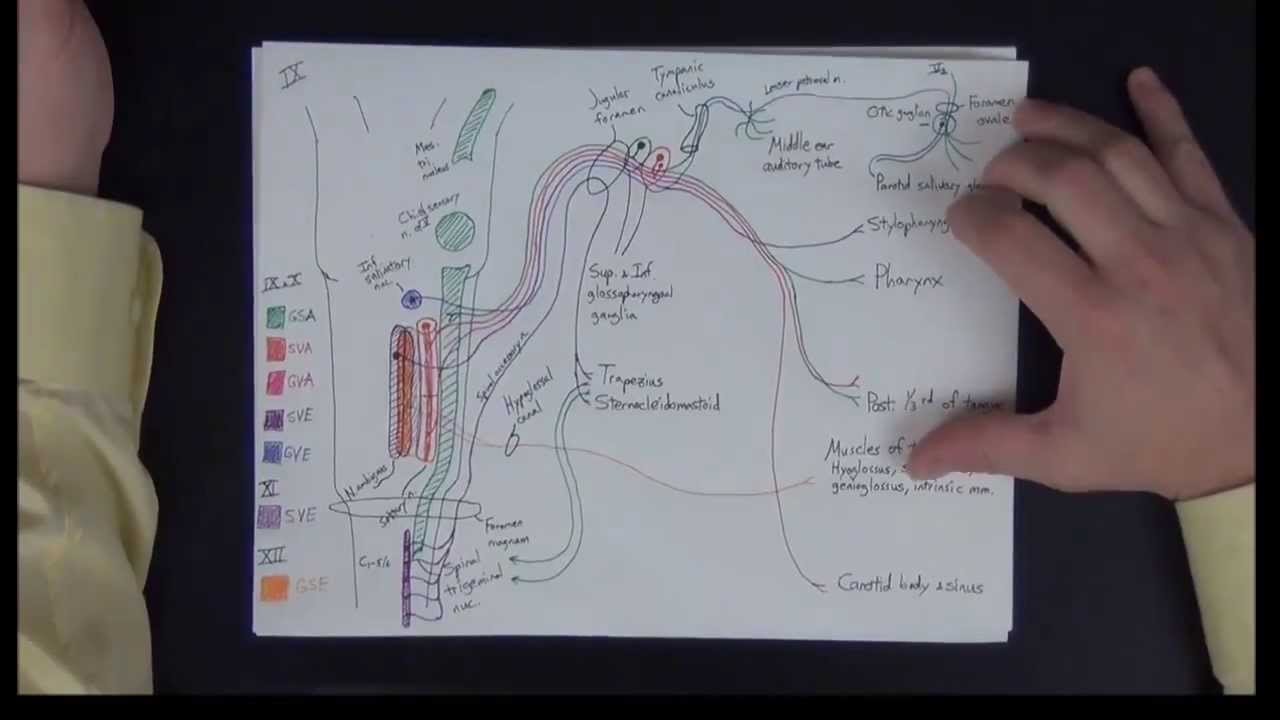 IX
Jugular
foramen
Tympanic
canaliculus
Lesser petrosal n.
V₃
Otic ganglion
Foramen
ovale
Mes.
tri
nucleus
Middle ear
auditory tube
Parotid salivary
Chief sensory
n. of V
Inf.
salivatory
nuc.
Pharynx
Sup. & Inf.
glossopharyngeal
ganglia
IX, X
GSA
SVA
GVA
SVE
GVE
XI
SVE
XII
GSE
Spinal accessory n.
Hypoglossal
canal
Trapezius
Sternocleidomastoid
Post. 1/3 rd of
Muscles of
Hyoglossus,
genioglossus, intrinsic mm.
N. ambiguus
Solitary n.
Foramen
magnum
C₁-5/6
Spinal
trigeminal
nuc.
Carotid body & sinus